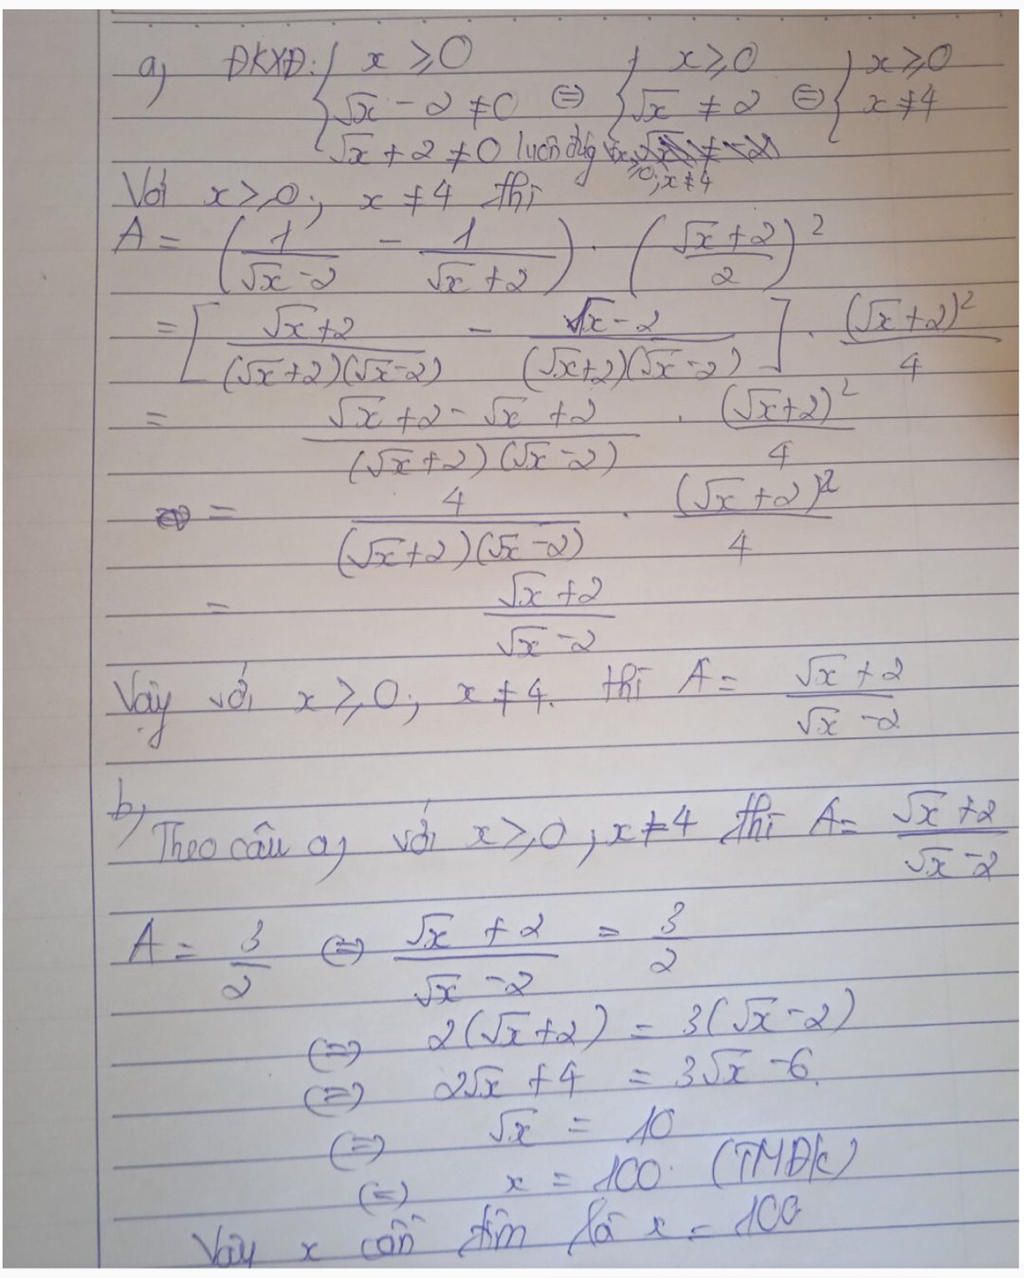 a) ĐKXĐ: { x ≥ 0 { x ≥ 0 { x ≥ 0
√x - 2 ≠ 0 ⇔ √x ≠ 2 ⇔ x ≠ 4
√x + 2 ≠ 0 luôn đúng ∀x ≥ 0; x ≠ 4
Với x ≥ 0; x ≠ 4 thì
A = (1/(√x - 2) - 1/(√x + 2)) . ((√x + 2)/2)²
= [(√x + 2)/((√x + 2)(√x - 2)) - (√x - 2)/((√x + 2)(√x - 2))] . (√x + 2)²/4
= (√x + 2 - √x + 2)/((√x + 2)(√x - 2)) . (√x + 2)²/4
= 4/((√x + 2)(√x - 2)) . (√x + 2)²/4
= (√x + 2)/(√x - 2)
Vậy với x ≥ 0; x ≠ 4. thì A = (√x + 2)/(√x - 2)
b, Theo câu a, với x ≥ 0; x ≠ 4 thì A = (√x + 2)/(√x - 2)
A = 3/2 (=) (√x + 2)/(√x - 2) = 3/2
(=) 2(√x + 2) = 3(√x - 2)
(=) 2√x + 4 = 3√x - 6.
(=) √x = 10
(=) x = 100. (TMĐK)
Vậy x cần tìm là x = 100